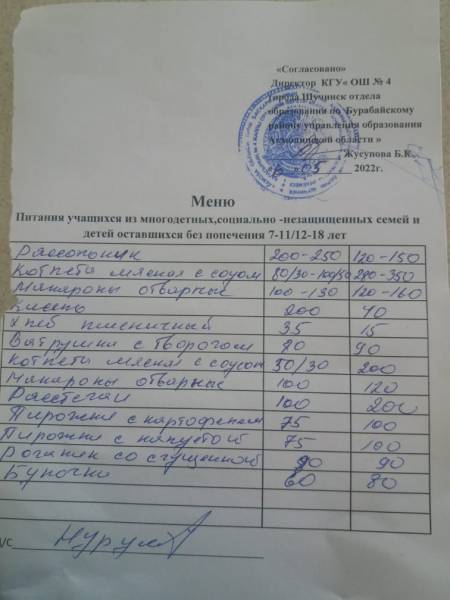 «Согласовано»
Директор КГУ« ОШ № 4
города Щучинск отдела
образования по Бурабайскому
району управления образования
Акмолинской области »
Жусупова Б.К.
05 2022г.
Меню
Питания учащихся из многодетных,социально -незащищенных семей и
детей оставшихся без попечения 7-11/12-18 лет
Рассольник 200-250 120-150
Котлета мясная с соусом 80/30-100/50 280-350
Макароны отварные 100-130 120-160
Кисель 200 40
Хлеб пшеничный 35 15
Ватрушка с творогом 80 90
Котлета мясная с соусом 50/30 200
Макароны отварные 100 120
Расстегай 100 200
Пирожки с картофелем 75 100
Пирожки с капустой 75 100
Рогалик со сгущенкой 90 90
Булочки 60 80